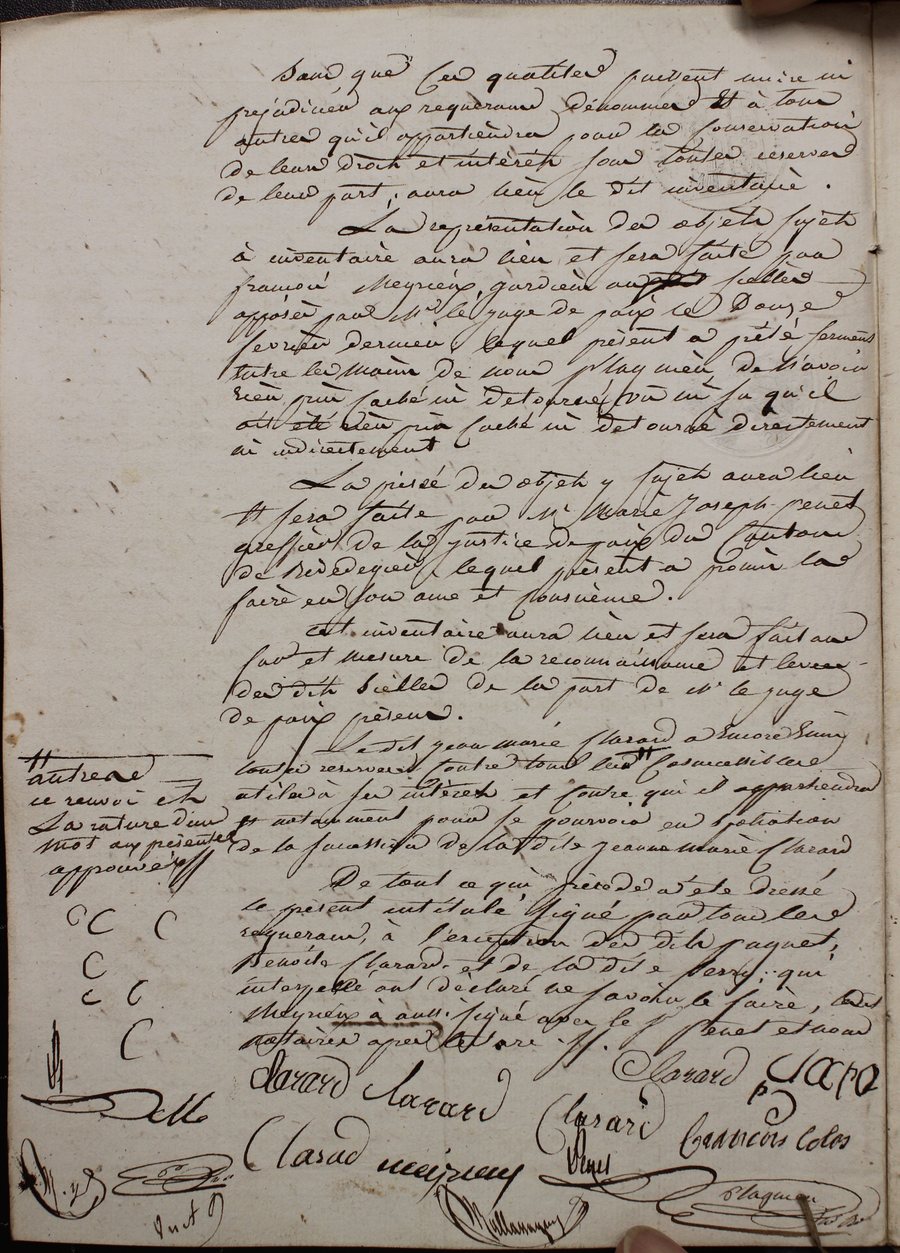 Sans que ces qualités puissent nuire ni
préjudicier aux requerans dénommés Et à tous
autres qu'il appartiendra, pour la Conservation
de leurs droits et intérêts sous toutes reserves
de leur part, aura lieu le dit inventaire.
La représentation des objets sujets
à inventaire aura lieu et sera faite par
françois Meyrieux, gardien aux scellés
apposés par Mr le juge de paix le Douze
fevrier dernier, lequel présent a prêté serment
entre les Mains de nous Plagnieu, De N'avoir
Rien pris caché ni detourné, vu ni su qu'il
ait été rien pris Caché ni detourné directement
ni indirectement
La prisée des objets y sujets aura lieu
Et sera faite par Mr Marie Joseph Penet
greffier de la justice de paix du Canton
de lequel présent a promis la
faire en son ame et Conscience.
cet inventaire aura lieu et sera fait au
fur et Mesure de la reconnaissance et levée
des dits Scellés de la part de Mr le juge
de paix présent.
Le dit jean marie Clarard a Encore Emis
toutes reserves Contre tous les
utiles a ses intérêts et Contre qui il appartiendra
Et notamment pour se pourvoir en spoliation
de la succession de la dite jeanne Marie Clarard
De tout ce qui précède a été dressé
le présent intitulé signé par tous les
requerans, à l'exception des dits paquet,
Benoite Clarard et de la dite qui
interpellés ont déclaré ne savoir le faire, ledit
Meyrieux à aussi signé avec le Sr Penet et nous
notaires après lecture.
autres
ce renvoi et
La rature d'un
mot aux présentes
approuvés
Clarard Clarard Clarard
Clarard François Colos
Clarard meirieux Penet
Plagnieu